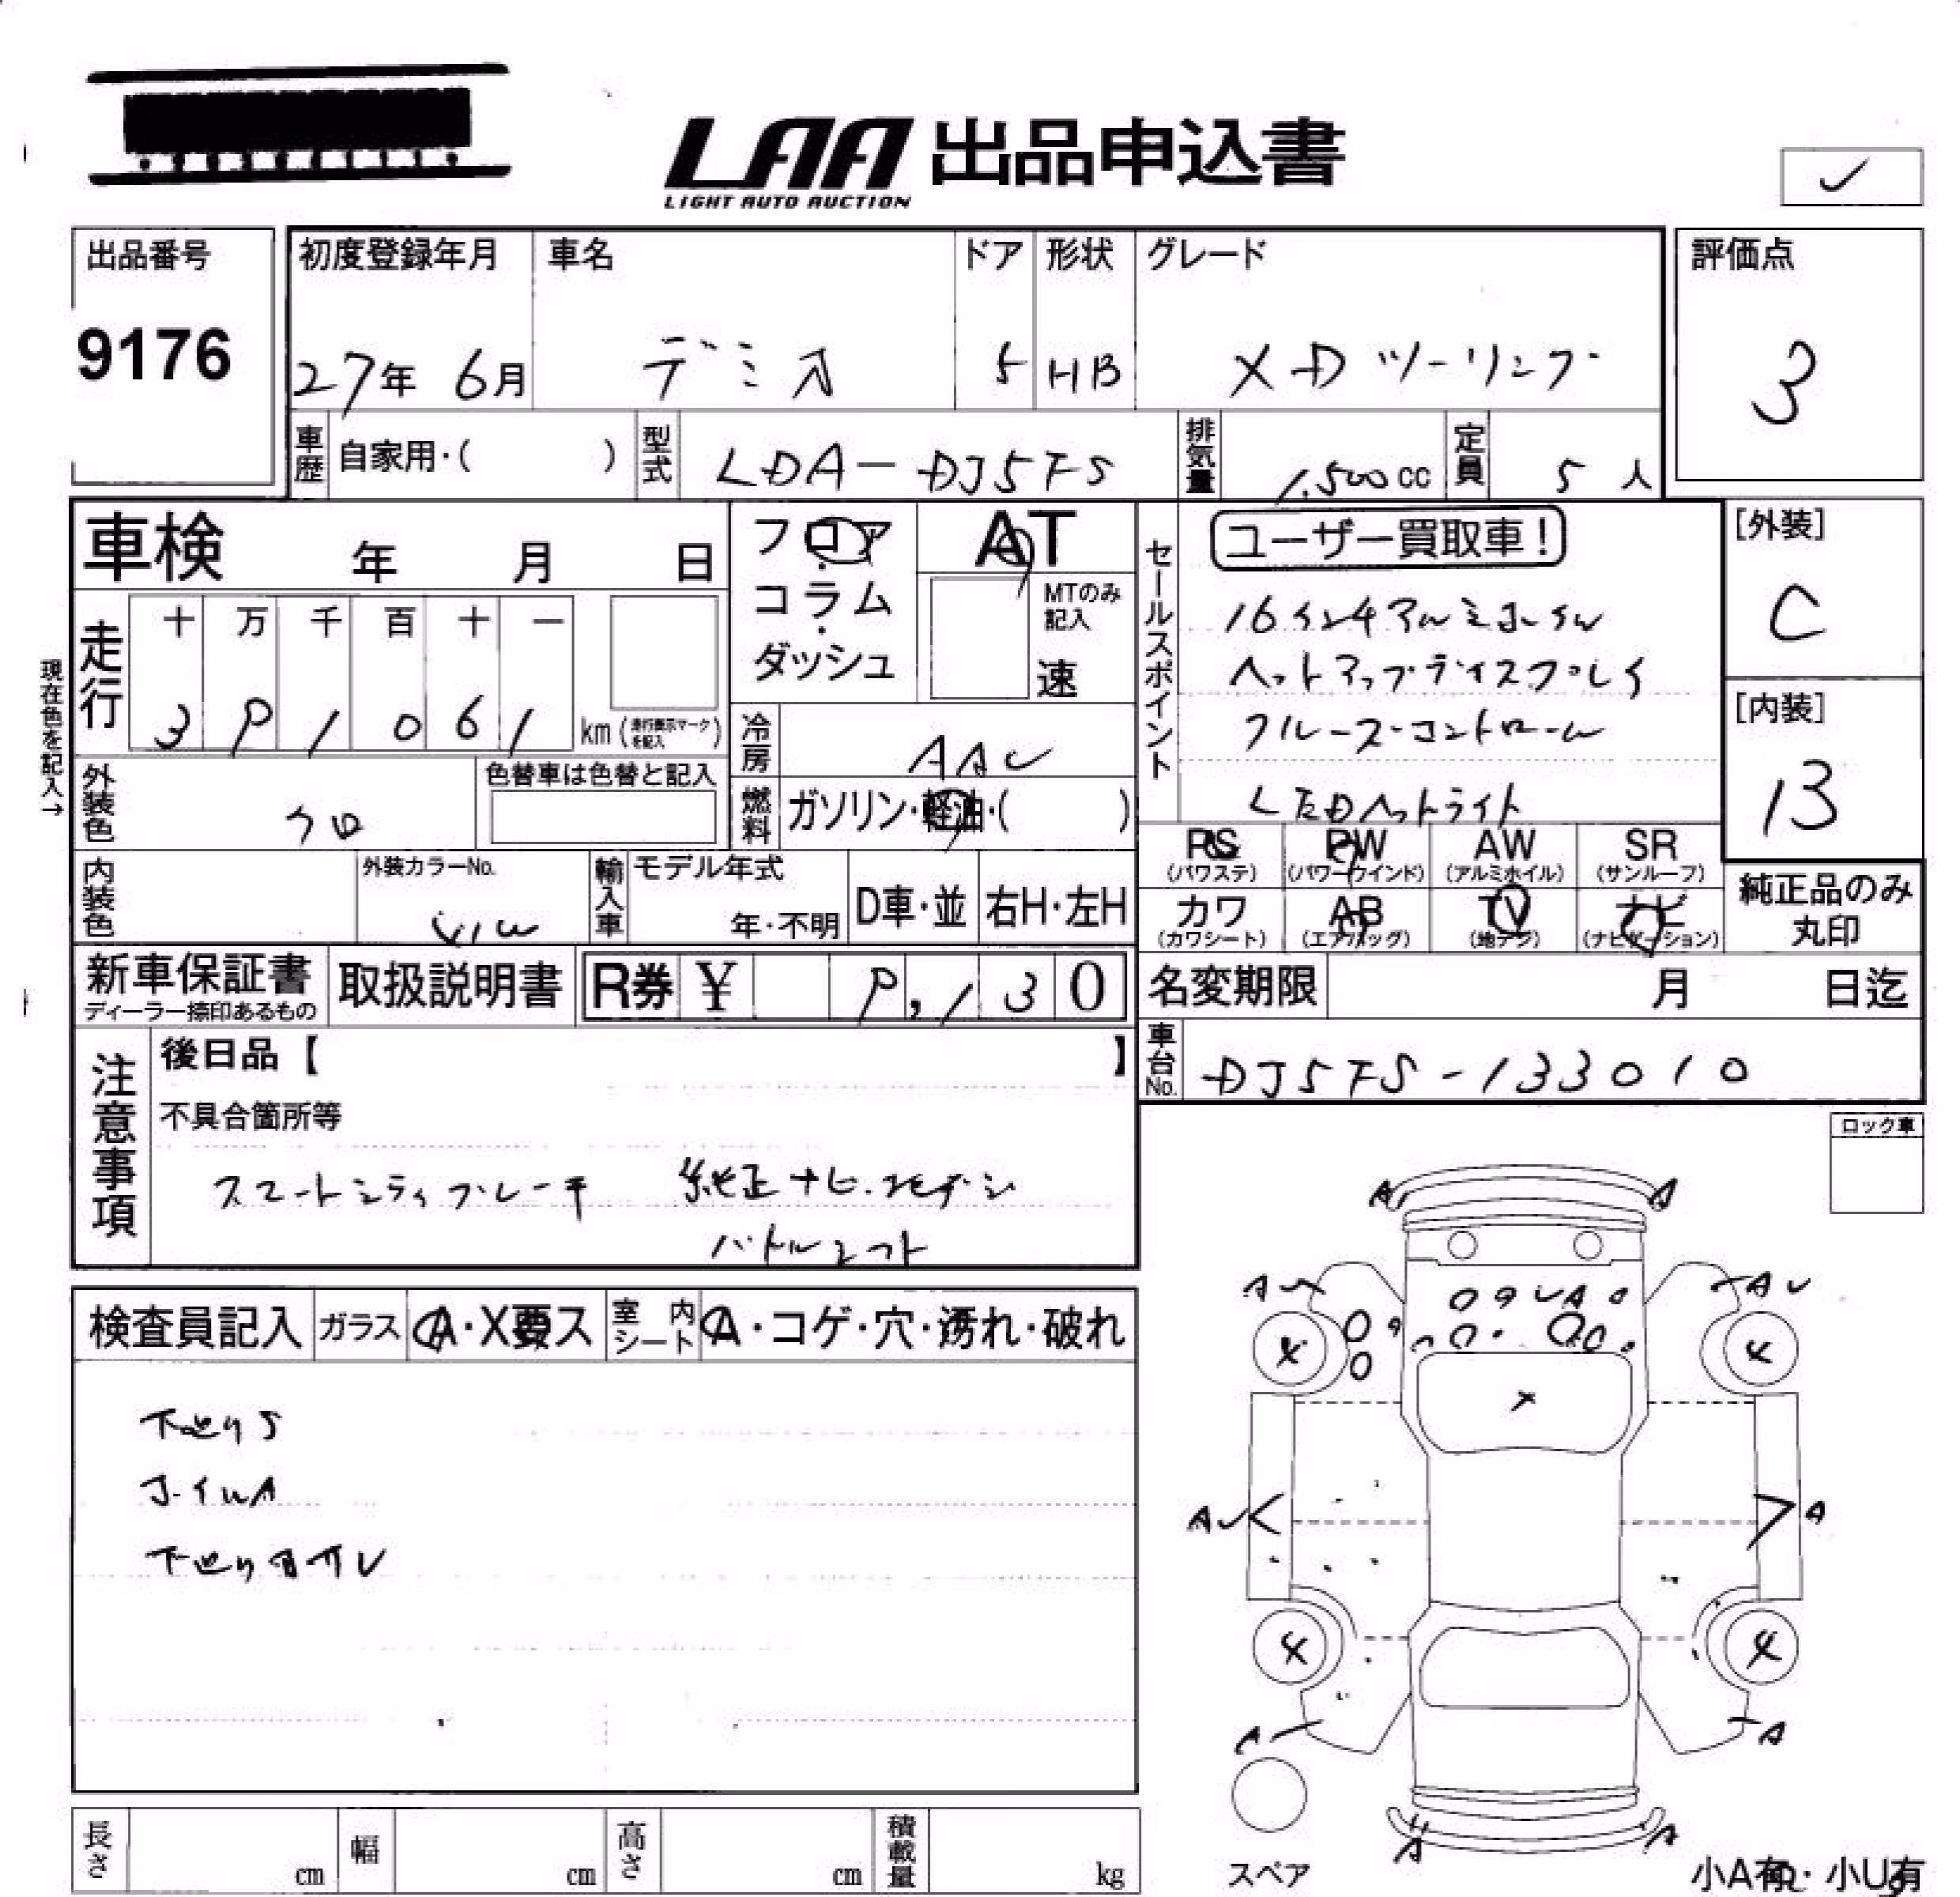 LAA 出品申込書
LIGHT AUTO AUCTION
✓
出品番号
9176
初度登録年月
27年 6月
車名
デミオ
ドア
5
形状
HB
グレード
XDツーリング
評価点
3
車歴
自家用・( )
型式
LDA-DJ5FS
排気量
1,500cc
定員
5人
車検 年 月 日
フロア
コラム
ダッシュ
AT
MTのみ記入
速
セールスポイント
ユーザー買取車!
16インチアルミホイル
ヘットアップディスプレイ
クルーズコントロール
LEDヘットライト
[外装]
C
[内装]
現在色を記入→
走行
十 万 千 百 十 一
km (走行表示マークを記入)
冷房
AAC
燃料
ガソリン・軽油・( )
外装色
クロ
色替車は色替と記入
内装色
外装カラーNo.
輸入車
モデル年式
年・不明
D車・並
右H・左H
PS
(パワステ)
PW
(パワーウインド)
AW
(アルミホイル)
SR
(サンルーフ)
カワ
(カワシート)
AB
(エアバッグ)
TV
(地デジ)
ナビ
(ナビゲーション)
純正品のみ
丸印
新車保証書
ディーラー捺印あるもの
取扱説明書
R券 ¥ 9,130
名変期限 月 日迄
車台No.
DJ5FS-133010
注意事項
後日品【 】
不具合箇所等
スマートシティブレーキ 純正ナビ
パドルシフト
ロック車
検査員記入
ガラス
A・X要ス
室内シート
A・コゲ・穴・汚れ・破れ
ホイルA
A A
A A
X
A A
A A
A A
スペア
小A有・小U有
長さ cm
幅 cm
高さ cm
積載量 kg